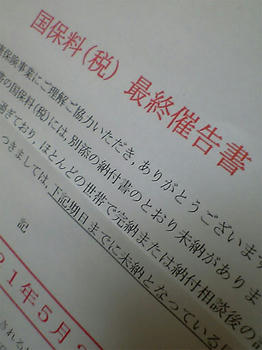 国保料(税) 最終催告書
保険事業にご理解ご協力いただき,ありがとうございます
の国保料(税)には,別添の納付書のとおり未納がありま
過ぎており,ほとんどの世帯で完納または納付相談後の
つきましては,下記期日までに未納となっている
記
21年5月